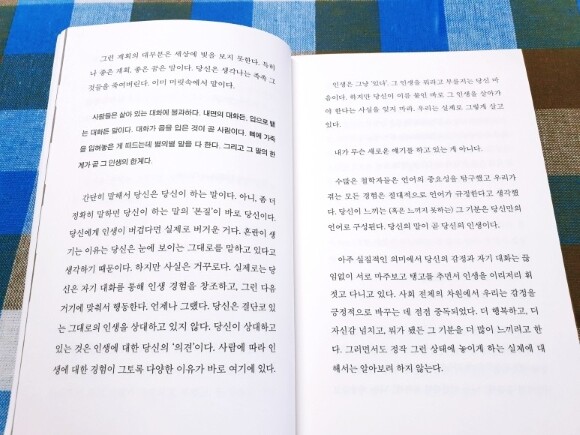 그런 계획의 대부분은 세상에 빛을 보지 못한다. 특히
나 좋은 계획, 좋은 꿈은 말이다. 당신은 생각나는 족족 그
것들을 죽여버린다. 이미 머릿속에서 말이다.
사람들은 살아 있는 대화에 불과하다. 내면의 대화든, 입으로 뱉
는 대화든 말이다. 대화가 몸을 입은 것이 곧 사람이다. 뼈에 가죽
을 입혀놓은 게 떠드는데 별의별 말을 다 한다. 그리고 그 말의 한
계가 곧 그 인생의 한계다.
간단히 말해서 당신은 당신이 하는 말이다. 아니, 좀 더
정확히 말하면 당신이 하는 말의 ‘본질’이 바로 당신이다.
당신에게 인생이 버겁다면 실제로 버거운 거다. 혼란이 생
기는 이유는 당신은 눈에 보이는 그대로를 말하고 있다고
생각하기 때문이다. 하지만 사실은 거꾸로다. 실제로는 당
신은 자기 대화를 통해 인생 경험을 창조하고, 그런 다음
거기에 맞춰서 행동한다. 언제나 그랬다. 당신은 결단코 있
는 그대로의 인생을 상대하고 있지 않다. 당신이 상대하고
있는 것은 인생에 대한 당신의 ‘의견’이다. 사람에 따라 인
생에 대한 경험이 그토록 다양한 이유가 바로 여기에 있다.
인생은 그냥 ‘있다’. 그 인생을 뭐라고 부를지는 당신 마
음이다. 하지만 당신이 이름 붙인 바로 그 인생을 살아가
야 한다는 사실을 잊지 마라. 우리는 실제로 그렇게 살고
있다.
내가 무슨 새로운 얘기를 하고 있는 게 아니다.
수많은 철학자들은 언어의 중요성을 탐구했고 우리가
겪는 모든 경험은 절대적으로 언어가 규정한다고 생각했
다. 당신이 느끼는 (혹은 느끼지 못하는) 그 기분은 당신만의
언어로 구성된다. 당신의 말이 곧 당신의 인생이다.
아주 실질적인 의미에서 당신의 감정과 자기 대화는 끊
임없이 서로 마주보고 탱고를 추면서 인생을 이리저리 휘
젓고 다니고 있다. 사회 전체의 차원에서 우리는 감정을
긍정적으로 바꾸는 데 점점 중독되었다. 더 행복하고, 더
자신감 넘치고, 뭐가 됐든 그 기분을 더 많이 느끼려고 한
다. 그러면서도 정작 그런 상태에 놓이게 하는 실체에 대
해서는 알아보려 하지 않는다.